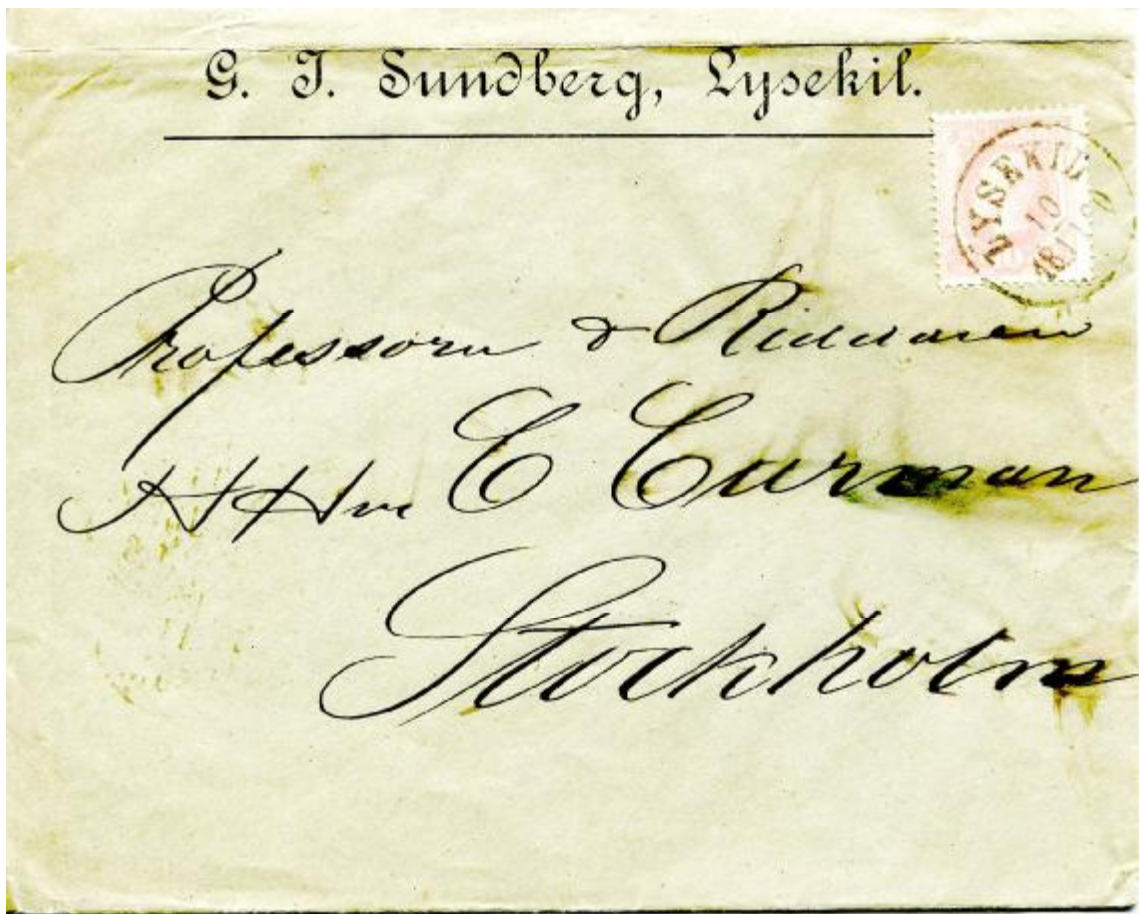 G. J. Sundberg, Lysekil.
LYSEKIL
10
Professorn & Riddaren
Herr C Curman
Stockholm